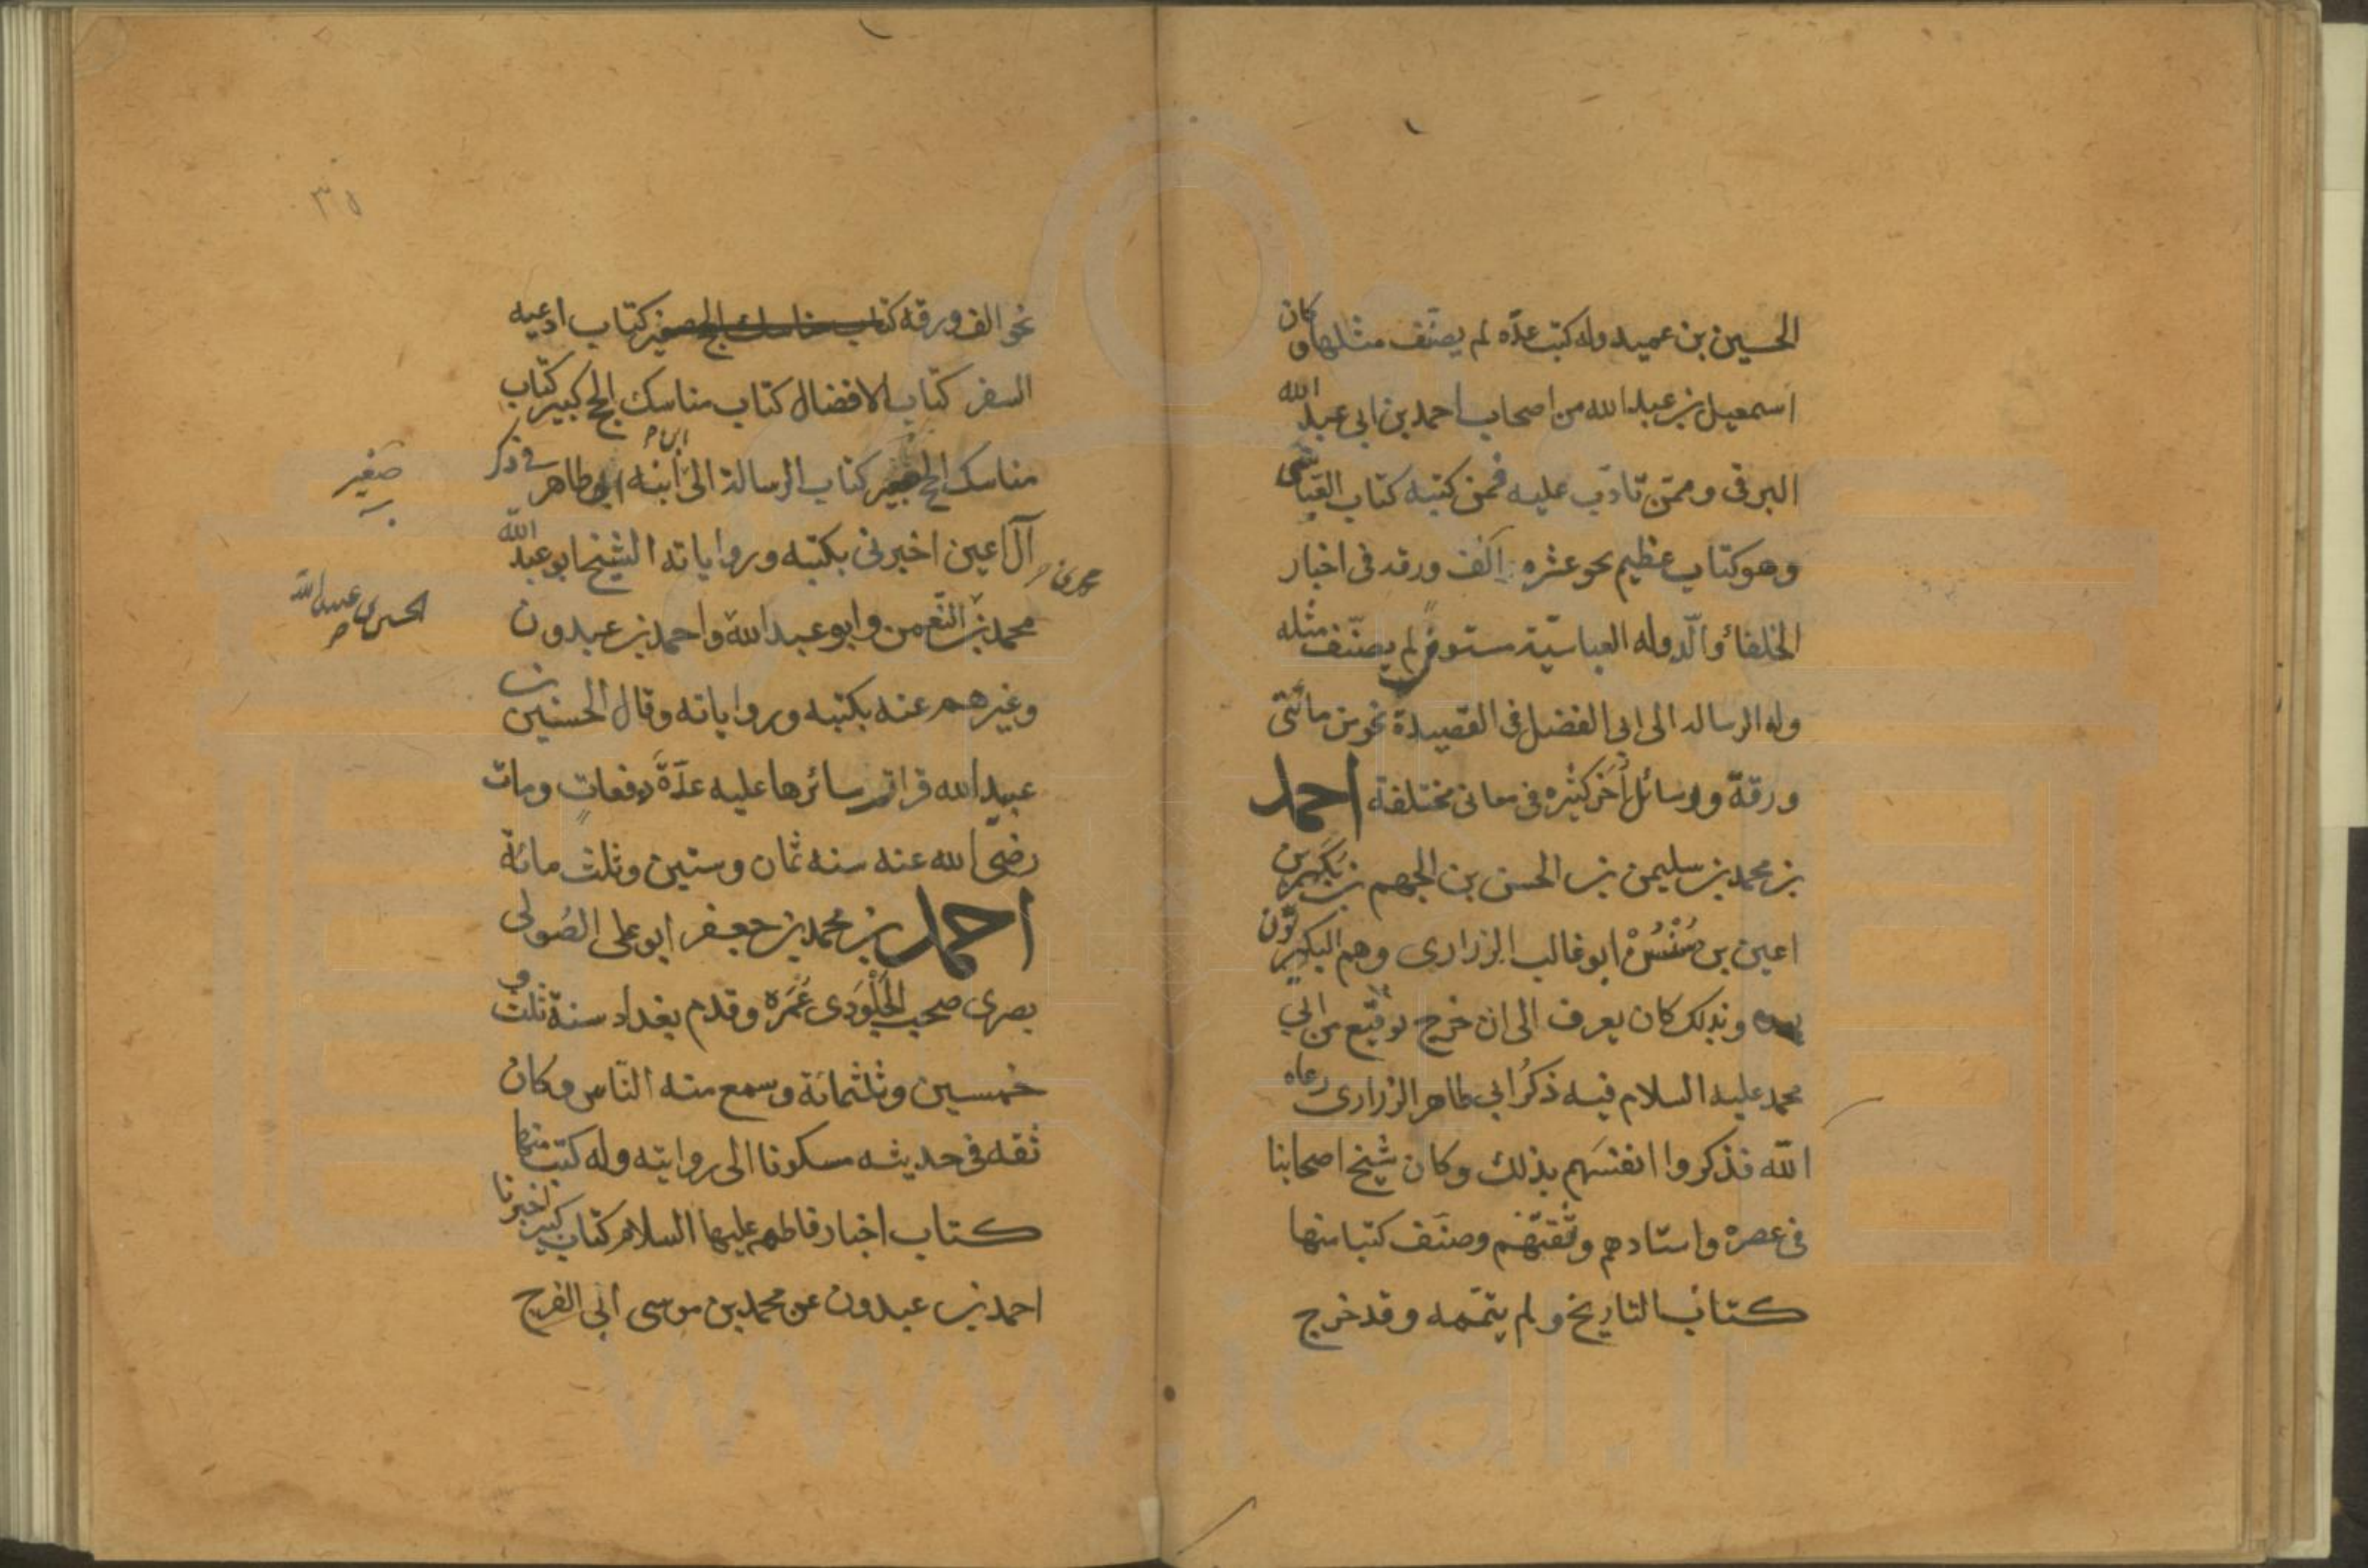 الحسين بن عميد وله كتب عدّه لم يصنّف مثلها وكان
اسمعيل بن عبد الله من اصحاب احمد بن ابى عبد الله
البرقى وممّن تادّب عليه فمن كتبه كتاب العبّاسى
وهو كتاب عظيم نحو عشره آلف ورقه فى اخبار
الخلفاء والدّوله العباسيّة مستوفى لم يصنّف مثله
وله الرساله الى ابى الفضل فى القصيدة نحو من مائتى
ورقة ورسائل أُخَر كثيره فى معانى مختلفة احمد
بن محمد بن سليمن بن الحسن بن الجهم بن بكير بن
اعين بن سُنْسُنْ ابو غالب الزرارى وهم البكيريّون
وبذلك كان يعرف الى ان خرج توقيع من ابي
محمد عليه السلام فيه ذكرُ ابي طاهر الزرارى رعاه
الله فذكروا انفسَهم بذلك وكان شيخ اصحابنا
فى عصره واستادهم وثقتهم وصنّف كتبا منها
كتاب التاريخ ولم يتمّمه وقد خرج
٣٥
نحو الف ورقة كتاب مناسك الحج صغير كتاب ادعيه
السفر كتاب الافضال كتاب مناسك الحج كبير كتاب
مناسك الحج صغير كتاب الرسالة الى ابنه ابى طاهر فى ذكر
ابن
صغير
آل اعين اخبرنى بكتبه ورواياته الشيخ ابو عبد الله
محمد بن
محمد بن النّعمن وابو عبد الله واحمد بن عبدون
الحسين بن عبيد الله
وغيرهم عنه بكتبه ورواياته وقال الحسين بن
عبيد الله قرات سائرها عليه عدّةَ دفعاتٍ ومات
رضى الله عنه سنه ثمان وستين وثلث مائة
احمد بن محمد بن جعفر ابو على الصُولى
بصرى صحب الجَلُودى عُمَرَه وقدم بغداد سنة ثلث و
خمسين وثلثمائة وسمع منه النّاس وكان
ثقه فى حديثه مسكونا الى روايته وله كتب منها
كتاب اخبار فاطمه عليها السلام كتاب كبير اخبرنا
احمد بن عبدون عن محمد بن موسى ابى الفرج
www.ical.ir